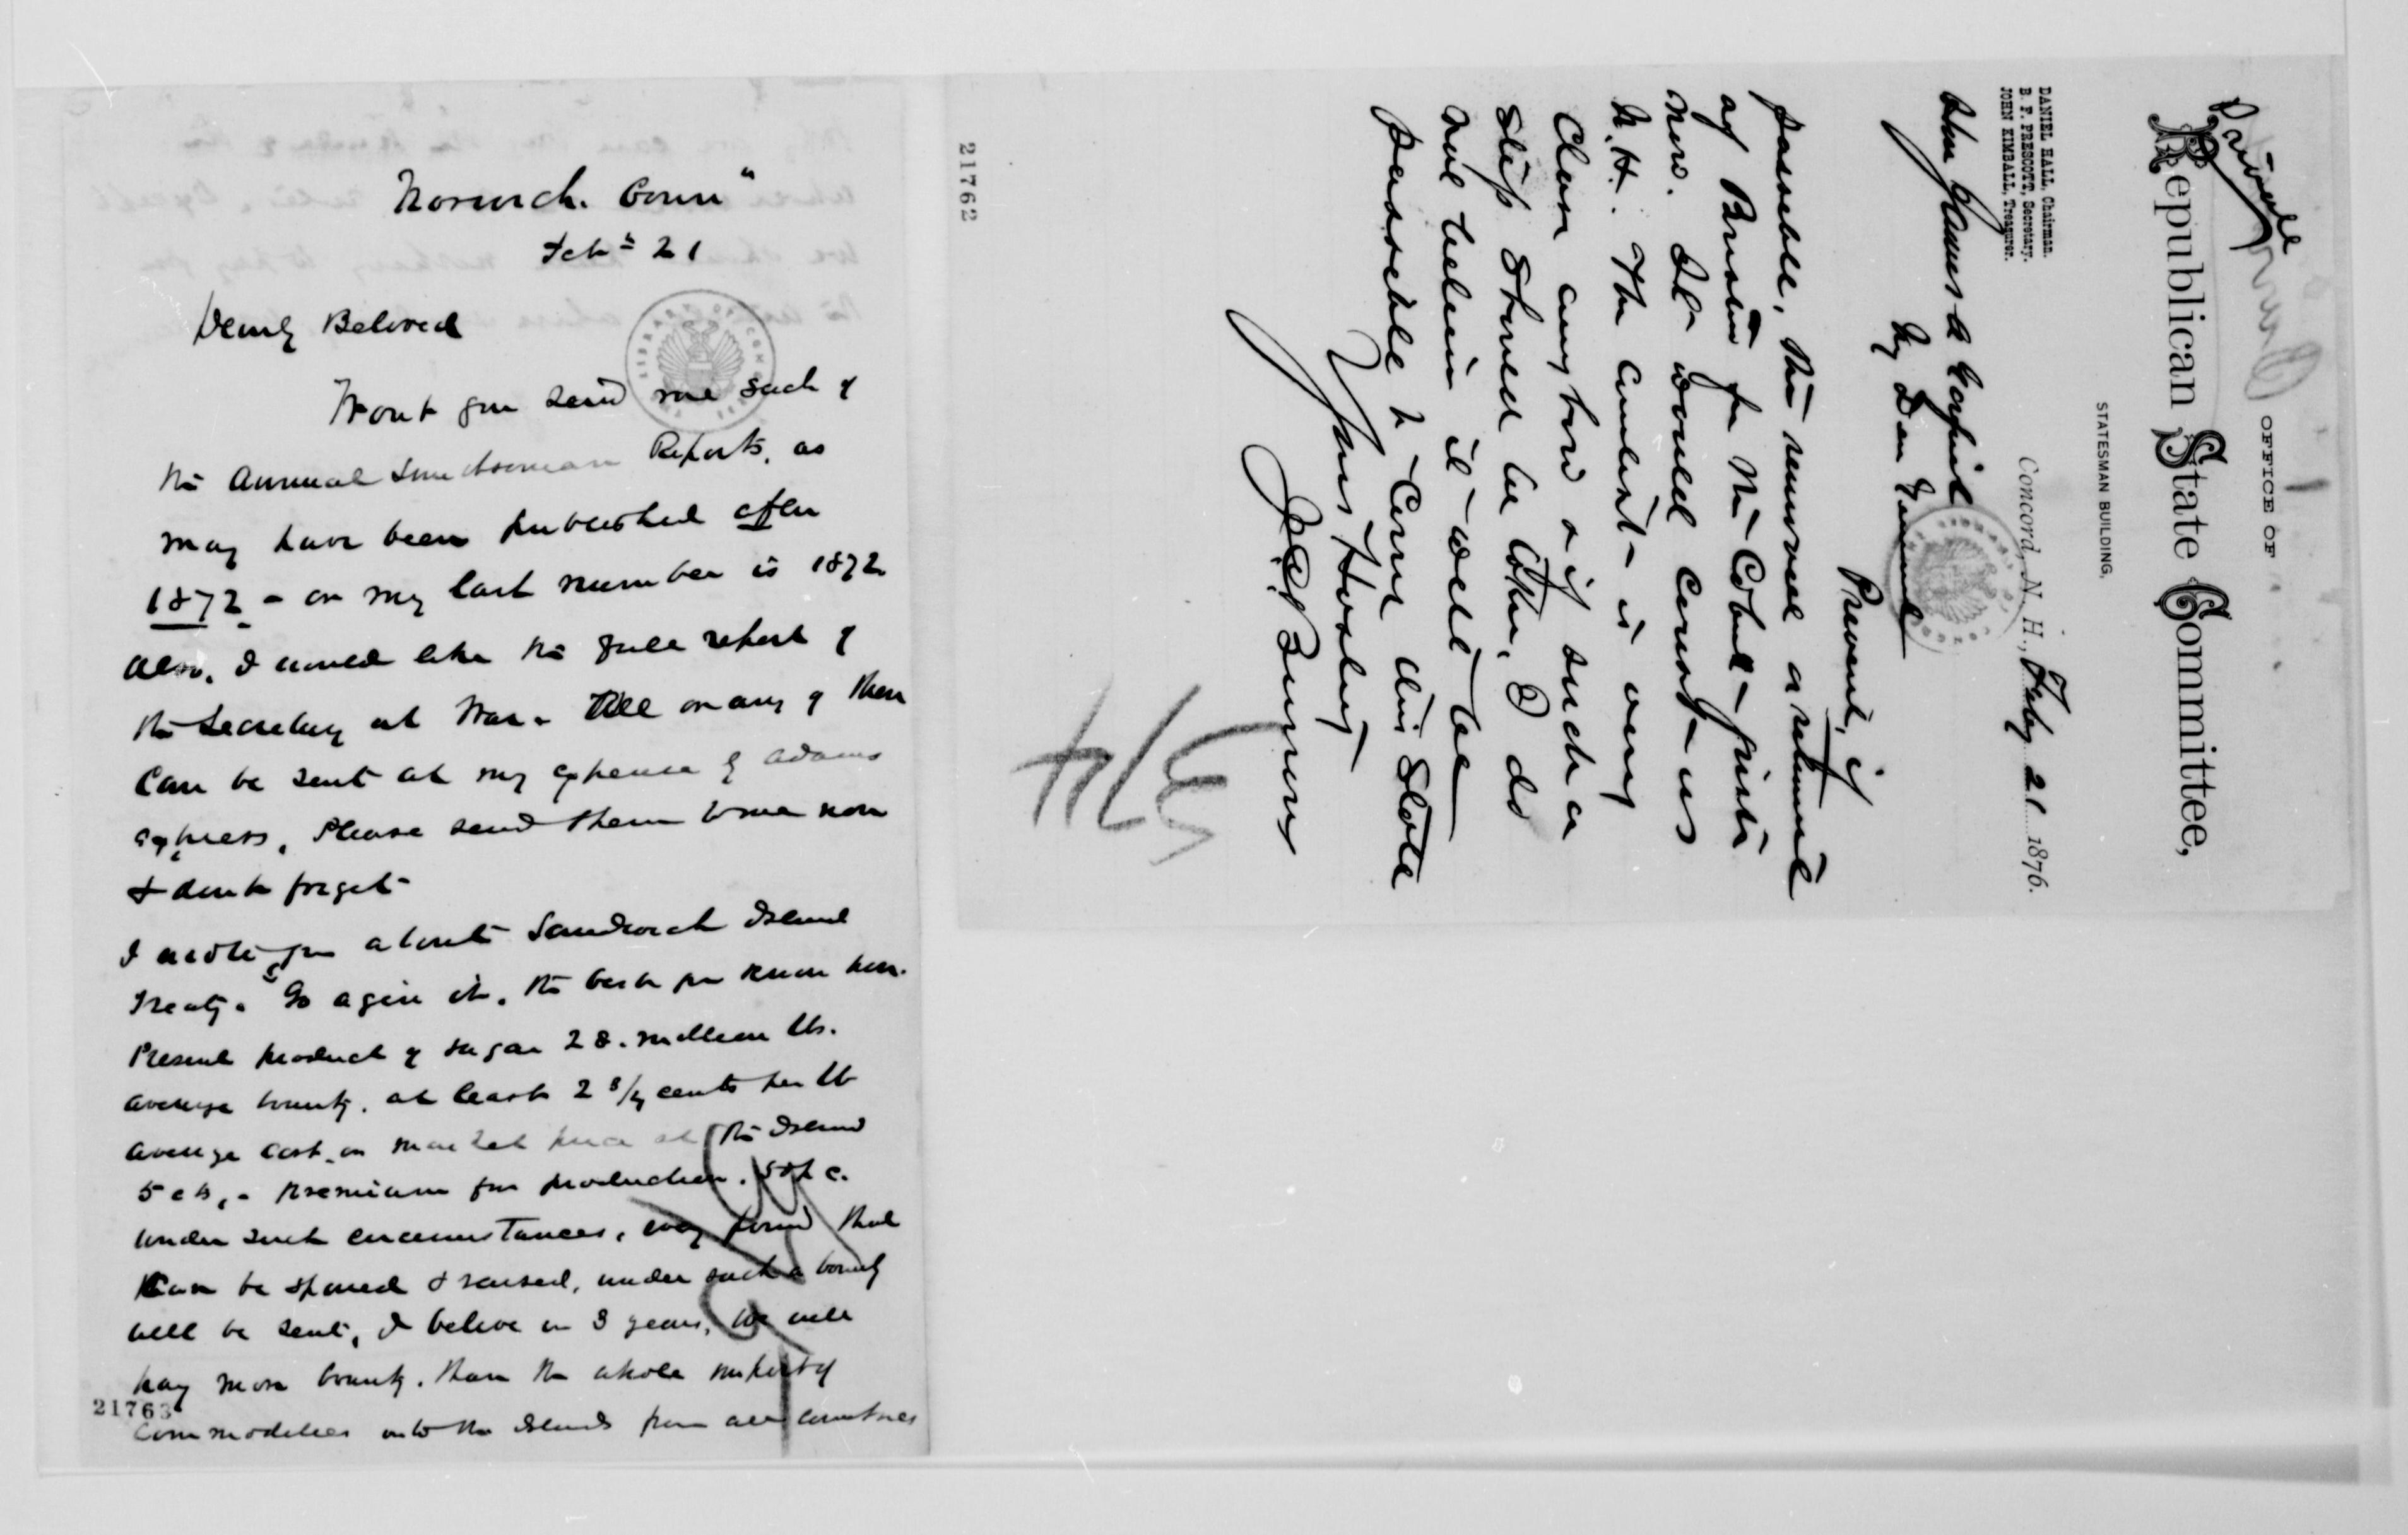 Norwich. Conn"
Feb 21
Dearly Beloved
Wont you send me such of
the Annual Smithsonian Reports, as
may have been published after
1872 - as my last number is 1872
also, I would like the full report of
the Secretary at War. All or any of them
Can be sent at my expense by Adams
Express, Please send them to me now
& dont forget
I wrote you about Sandwich Island
Treaty. "Go agin it. the best you know how.
Present product of sugar 28. million lbs.
average bounty. at least 2 3/4 cents per lb
average cost. or market price at the Island
5 cts, - Premium for production. 50 p c.
Under such circumstances, every pound that
Can be spared & raised, under such a bounty
will be sent, I believe in 3 years, we will
pay more bounty. than the whole import of
Commodities into the Islands from all countries
21763
21762
Private
OFFICE OF
Republican State Committee,
STATESMAN BUILDING.
DANIEL HALL, Chairman.
B. F. PRESCOTT, Secretary.
JOHN KIMBALL, Treasurer.
Concord, N. H., Feby 21 1876.
Hon James A Garfield
My Dear General
Prevent, if
possible, the removal or retirement
of Bristow from the Cabinet - just
now. It would Cost us
N.H. The Contest is very
Close anyhow & if such a
step should be taken, I do
not believe it would be
possible to Carry this State
Yours Hastily